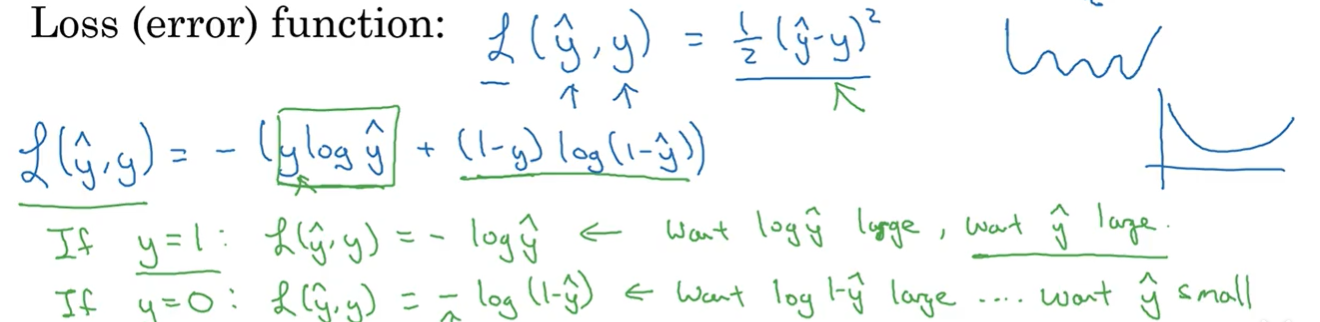 Loss (error) function: ℒ(ŷ, y) = ½(ŷ-y)²
ℒ(ŷ,y) = - (y log ŷ + (1-y) log(1-ŷ))
If y=1: ℒ(ŷ,y) = - log ŷ ← Want log ŷ large, want ŷ large.
If y=0: ℒ(ŷ,y) = - log (1-ŷ) ← Want log 1-ŷ large .... want ŷ small